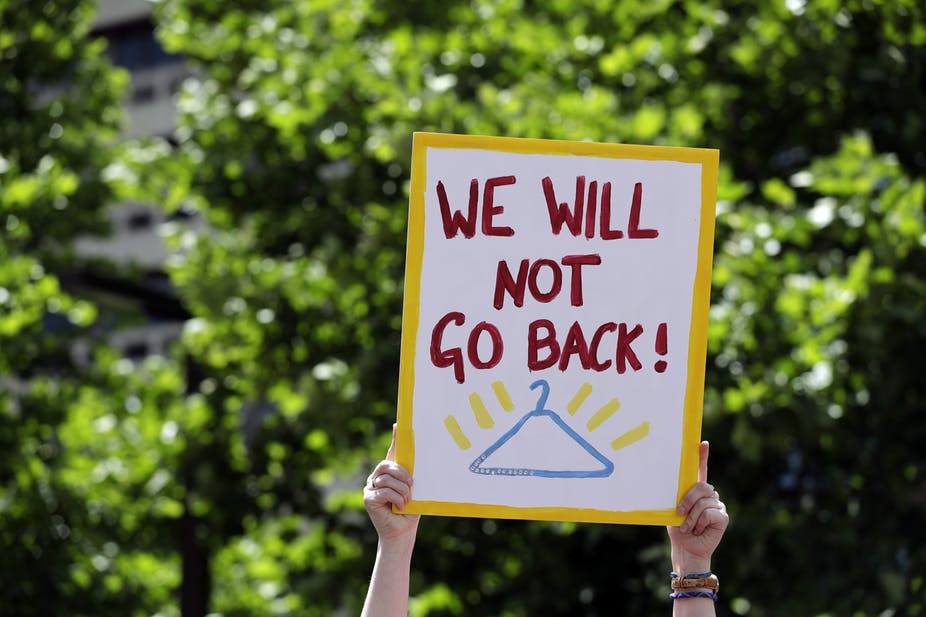 WE WILL
NOT
GO BACK!